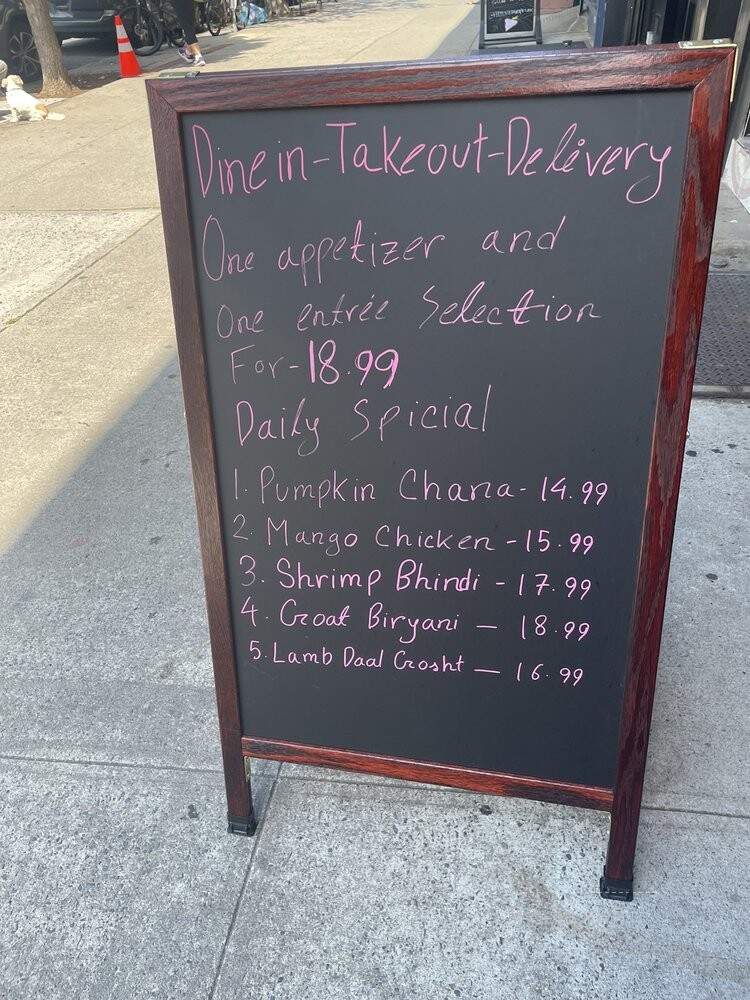 Dine in-Takeout-Delivery
One appetizer and
One entrée Selection
For-18.99
Daily Spicial
1. Pumpkin Chana-14.99
2 Mango Chicken-15.99
3. Shrimp Bhindi-17.99
4. Goat Biryani — 18.99
5. Lamb Daal Gosht — 16.99